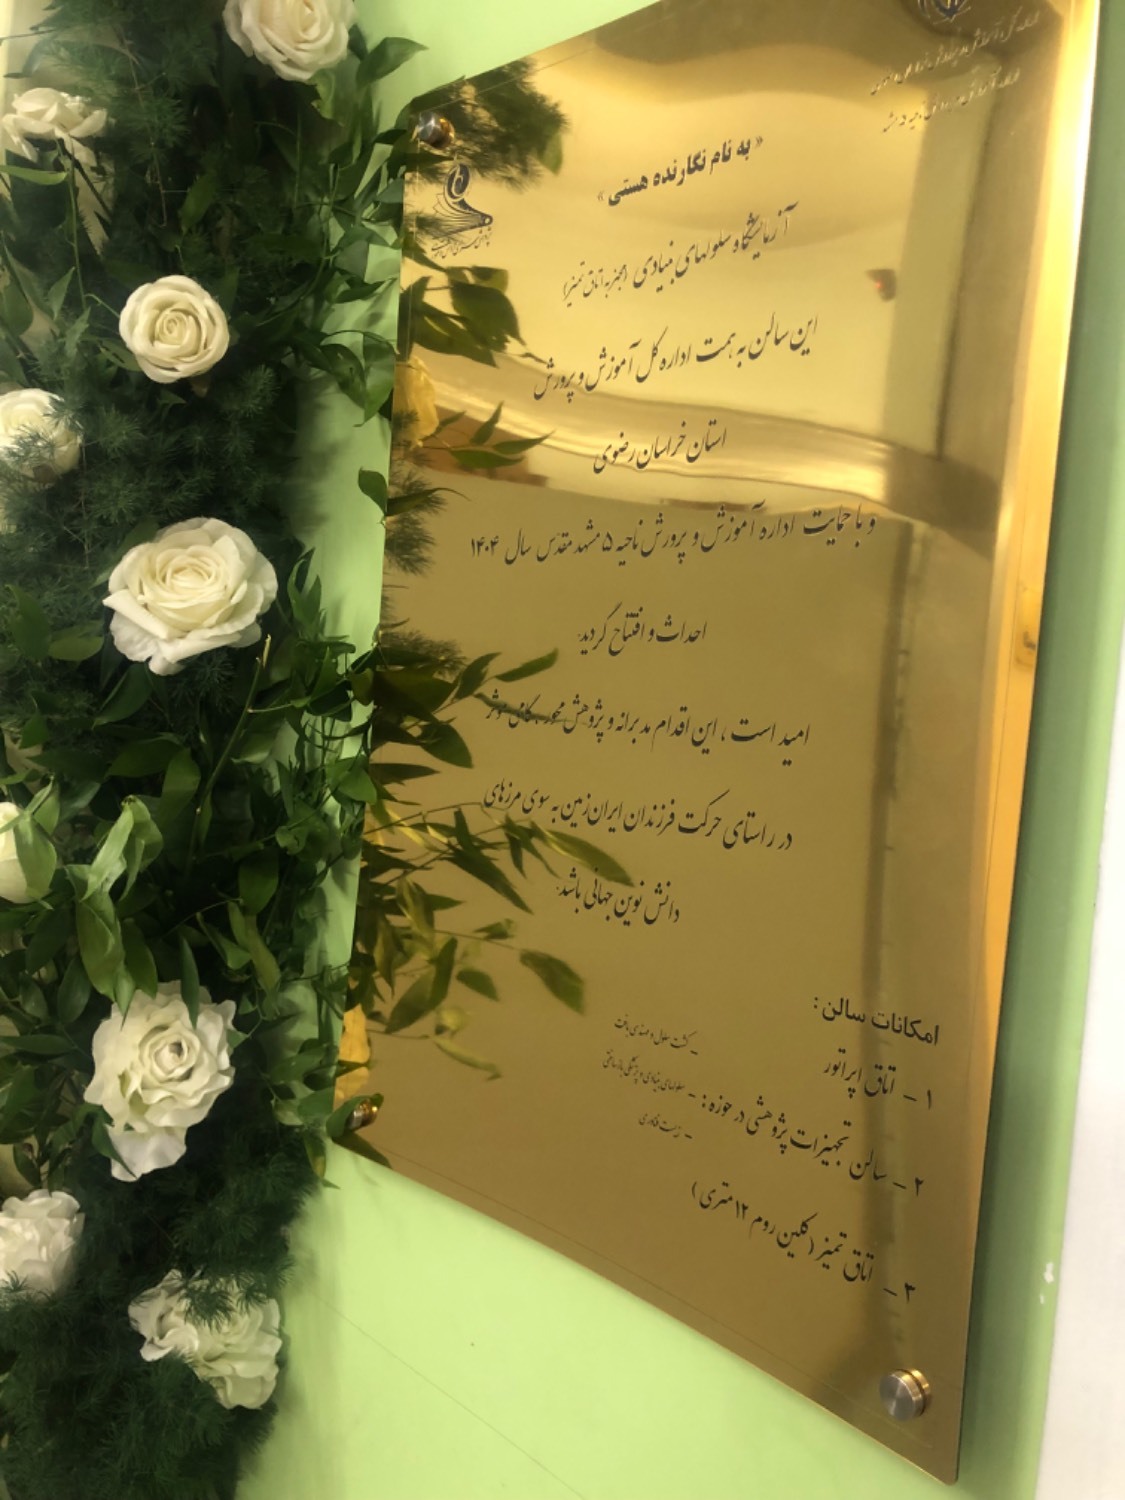 « به نام نگارنده هستی »
آزمایشگاه سلولهای بنیادی (مجهز به اتاق تمیز)
این سالن به همت اداره کل آموزش و پرورش
استان خراسان رضوی
و با حمایت اداره آموزش و پرورش ناحیه ۵ مشهد مقدس سال ۱۴۰۴
احداث و افتتاح گردید.
امید است ، این اقدام مدبرانه و پژوهش محور ، گامی موثر
در راستای حرکت فرزندان ایران زمین به سوی مرزهای
دانش نوین جهانی باشد.
امکانات سالن :
۱ – اتاق اپراتور
۲ – سالن تجهیزات پژوهشی در حوزه :
– کشت سلول و مهندسی بافت
– سلولهای بنیادی و پزشکی بازساختی
– زیست فناوری
۳ – اتاق تمیز (کلین روم ۱۲ متری )